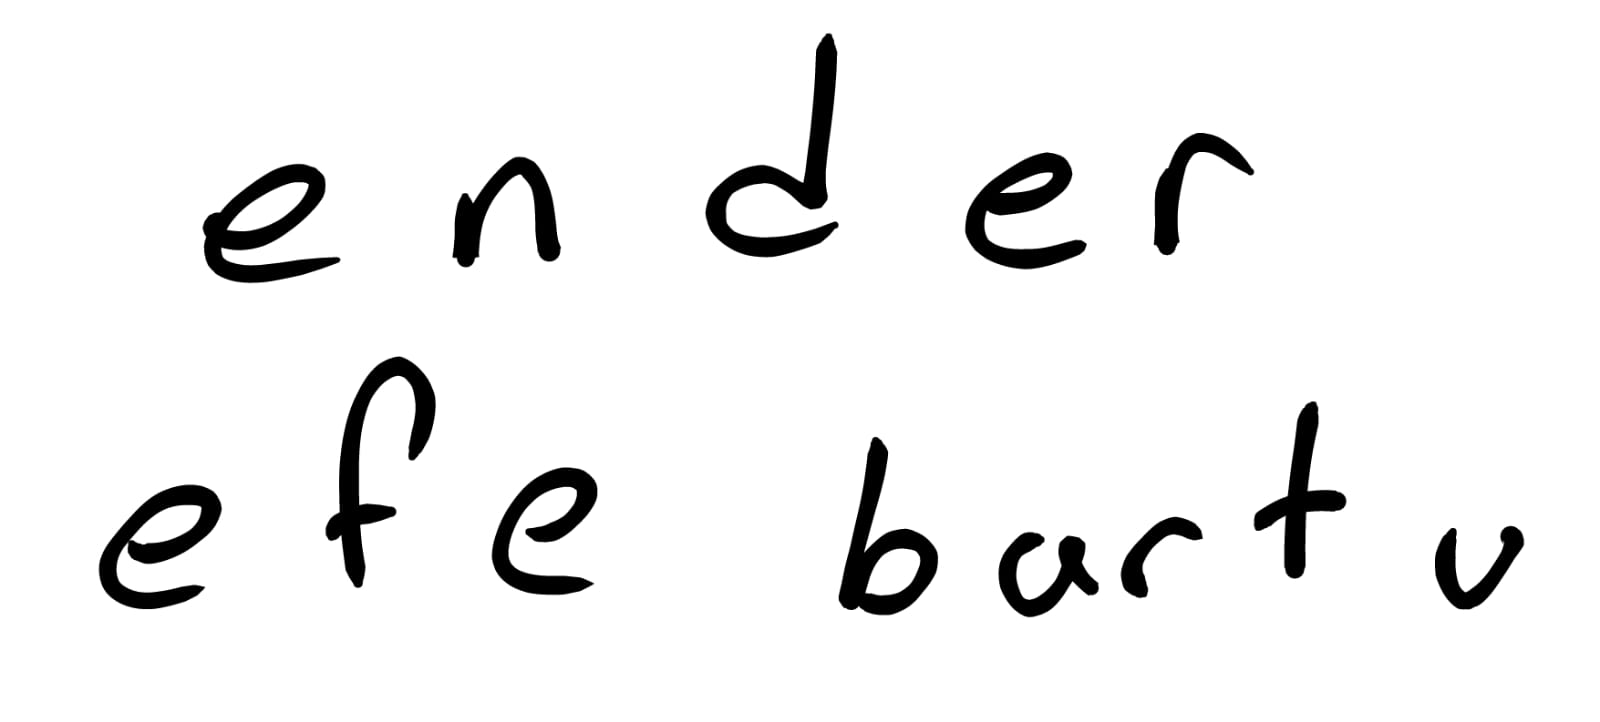 ender
efe bartu